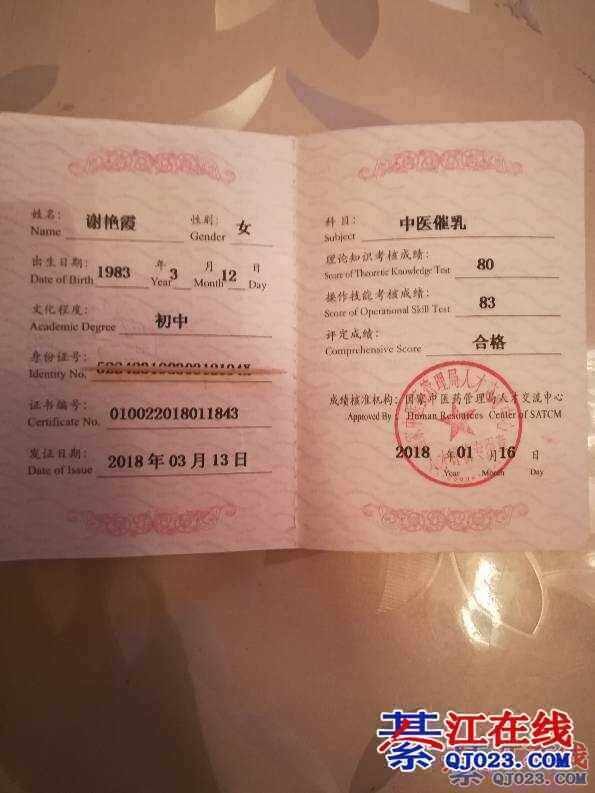 姓名: 谢艳霞 性别: 女
Name Gender
出生日期: 1983 年 3 月 12 日
Date of Birth Year Month Day
文化程度: 初中
Academic Degree
身份证号:
Identity No.
证书编号: 010022018011843
Certificate No.
发证日期: 2018 年 03 月 13 日
Date of Issue
科目: 中医催乳
Subject
理论知识考核成绩: 80
Score of Theoretic Knowledge Test
操作技能考核成绩: 83
Score of Operational Skill Test
评定成绩: 合格
Comprehensive Score
成绩核准机构: 国家中医药管理局人才交流中心
Approved By Human Resources Center of SATCM
2018 年 01 月 16 日
Year Month Day
管理局人才
綦江在线
QJ023.COM
QJ023.COM